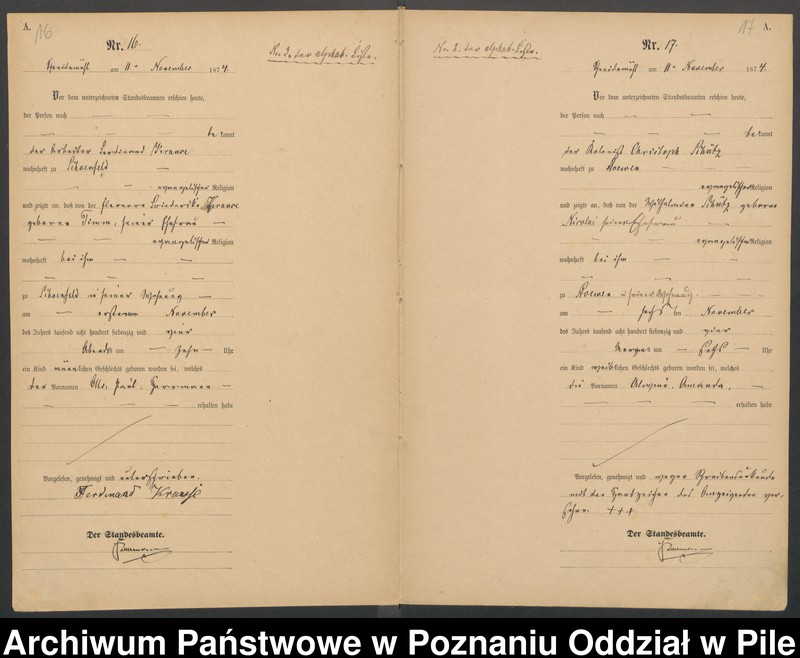 A.
16
Nr. 16.
am 11ten November 1874.
Vor dem unterzeichneten Standesbeamten erschien heute,
der Person nach
be kannt
der Arbeiter Ferdinand
wohnhaft zu Schoenfeld
evangelischer Religion
und zeigte an, daß von der Friederike
geborene Timm, seiner Ehefrau
evangelischer Religion
wohnhaft bei ihm
zu Schoenfeld in seiner Wohnung
am ersten November
des Jahrs tausend acht hundert siebenzig und vier
Abends um zehn Uhr
ein Kind männlichen Geschlechts geboren worden sei, welches
der Vornamen Otto, Paul, Herrmann
erhalten habe
Vorgelesen, genehmigt und unterschrieben.
Ferdinand Krause
Der Standesbeamte.
17
A.
Nr. 17.
am 11ten November 1874.
Vor dem unterzeichneten Standesbeamten erschien heute,
der Person nach
be kannt
der Kolonist Christoph Schütz
wohnhaft zu
evangelischer Religion
und zeigte an, daß von der Wilhelmine Schütz geborene
Nicolai seiner Ehefrau
evangelischer Religion
wohnhaft bei ihm
zu in seiner Wohnung
am sechs ten November
des Jahrs tausend acht hundert siebenzig und vier
Morgens um sechs Uhr
ein Kind weiblichen Geschlechts geboren worden sei, welches
die Vornamen Amanda,
erhalten habe
Vorgelesen, genehmigt und wegen Schreibensunkunde
mit den Handzeichen des Anzeigenden ver-
sehen. +++
Der Standesbeamte.
Archiwum Państwowe w Poznaniu Oddział w Pile